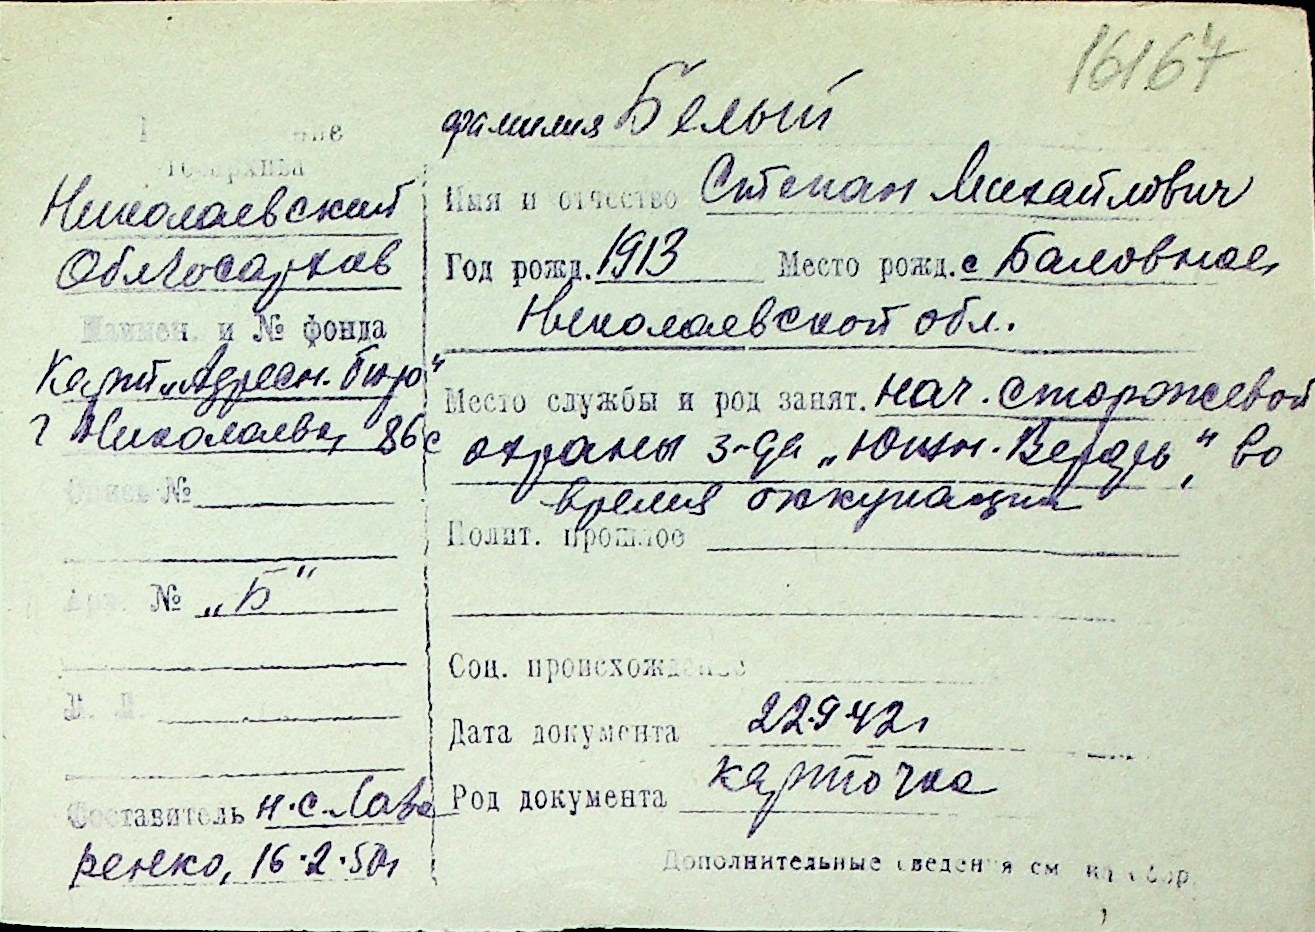 16167
фамилия Белый
Госархива
Николаевский
Облгосархив
Наимен. и № фонда
Карт. „Адресн. бюро“
г Николаева, 86 с
Опись №
Арх. № „Б“
К. Л.
Составитель Н. С. Лавренко, 16.2.50г
Имя и отчество Степан Михайлович
Год рожд. 1913 Место рожд. с Баловное,
Николаевской обл.
Место службы и род занят. нач. сторожевой
охраны з-да „Южн. Верфь“, во
время оккупации
Полит. прошлое
Соц. происхождение
Дата документа 22.9.42г
Род документа карточка
Дополнительные сведения см на обор.